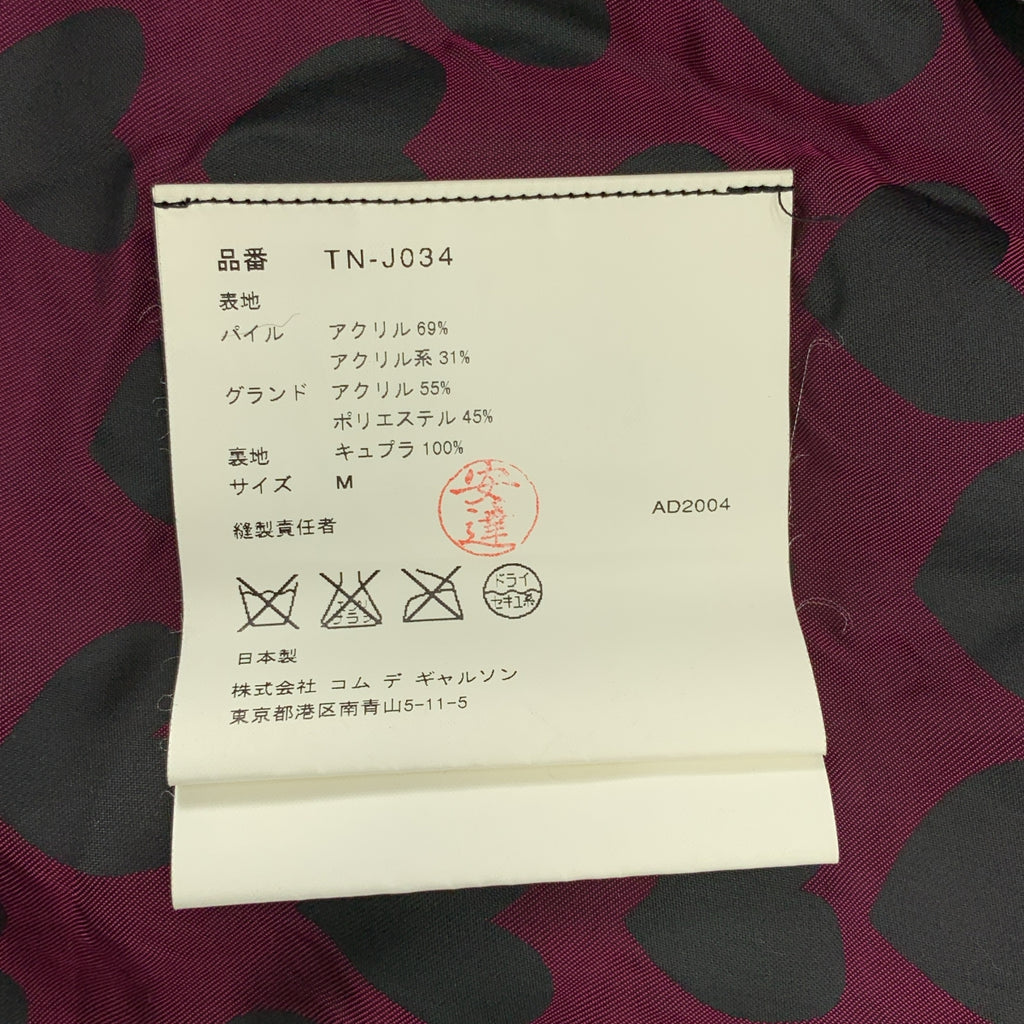 品番 TN-J034
表地
パイル アクリル 69%
アクリル系 31%
グランド アクリル 55%
ポリエステル 45%
裏地 キュプラ 100%
サイズ M
安達
縫製責任者
AD2004
エンソ
サラシ
ドライ
セキユ系
日本製
株式会社 コム デ ギャルソン
東京都港区南青山5-11-5